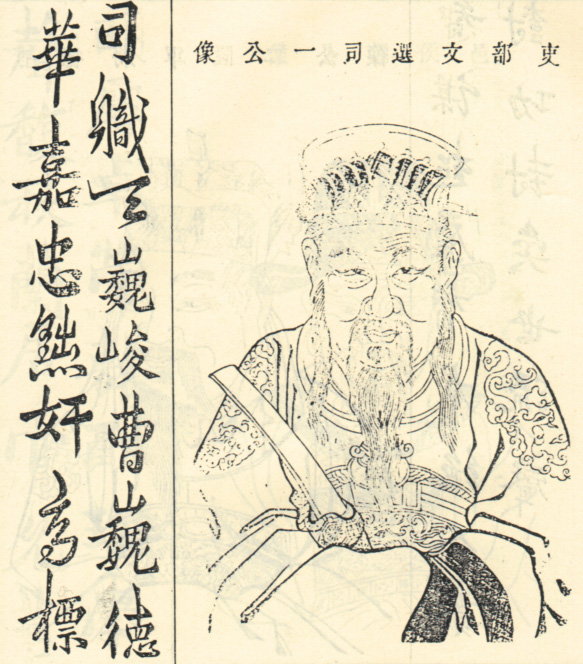 吏部文選司一公像
司職巍峻曹巍德
華嘉忠黜奸高標